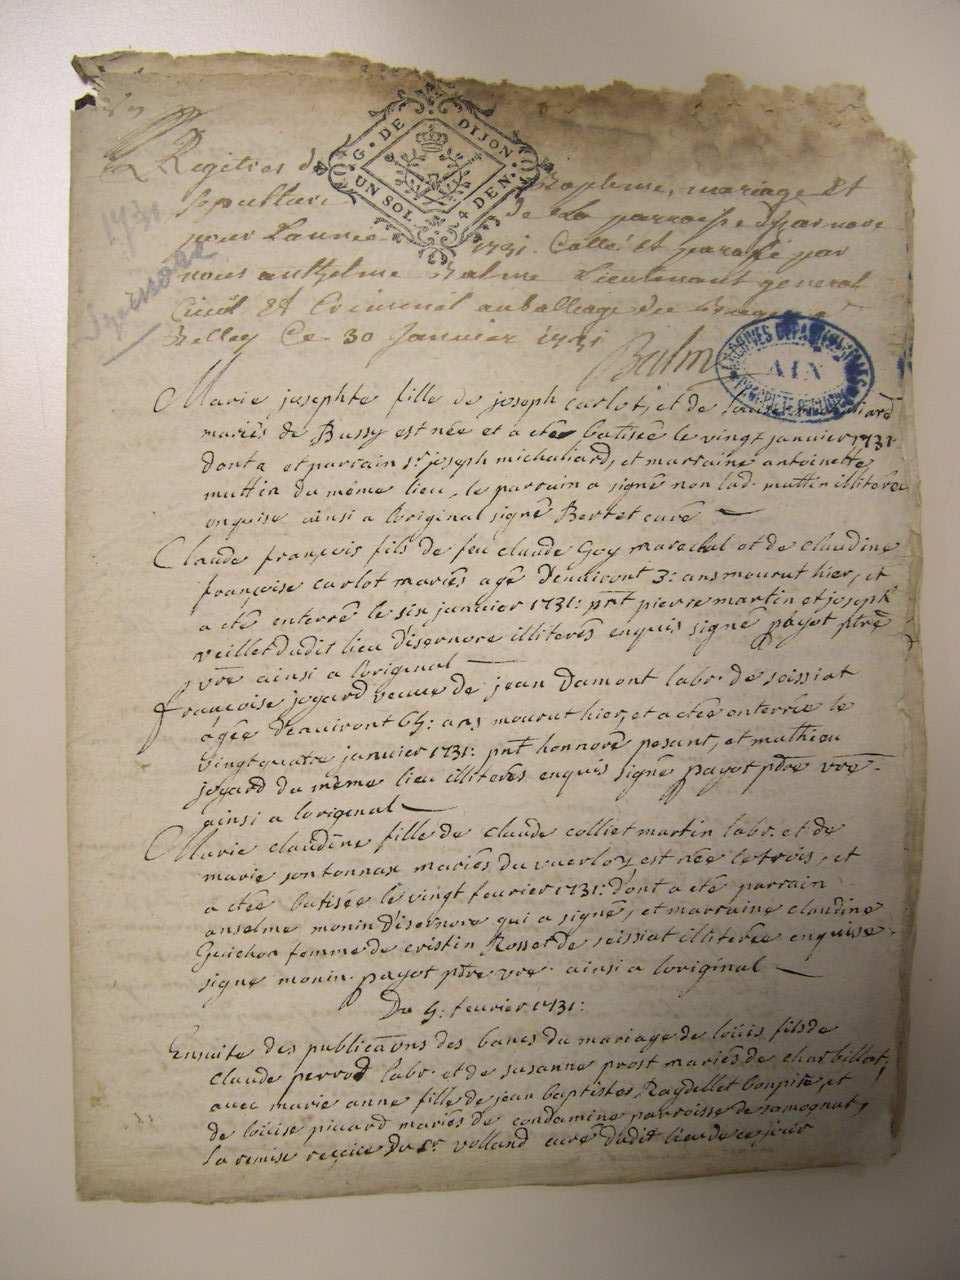 G. DE DIJON
UN SOL 4 DEN.
Regitres de Bapteme, mariage Et
Sepulture De La parroisse d'Izarnore
pour L'année 1731. Cotté Et paraffé par
nous anthelme Balme Lieutenant general
Civil Et Criminel au balliage du Bugey
Belley Ce 30 Janvier 1731
Balme
1731
Izernore
ARCHIVES DÉPARTEMENTALES
AIN
Marie josephte fille de joseph carlot, et de
mariés de Bussy est née et a etée batisée le vingt janvier 1731
dont a eté parrain Sr joseph michaliard, et marraine antoinette
muttin du même lieu, le parrain a signé non lad. muttin illiterée
enquise ainsi a l'original signé Bertet curé
Claude françois fils de feu claude Goy marechal et de claudine
françoise carlot mariés agé d'enuiront 3: ans mourut hier, et
a eté enterré le six janvier 1731: pnt pierre martin et joseph
veillet dudit lieu d'isernore illiterés enquis signé payot ptre
vre ainsi a l'original
françoise joyard veuue de jean Damont labr. de seissiat
agée d'enuiront 64: ans mourut hier, et a etée enterrée le
vingt quatre janvier 1731: pnt honnoré pesant, et mathieu
joyard du même lieu illiterés enquis signé payot ptre vre
ainsi a l'original
Marie claudine fille de claude colliet martin labr. et de
marie jontonnax mariés du vuerloz est née le trois, et
a etée batisée le vingt feurier 1731: dont a eté parrain
anselme monin d'isernore qui a signé, et marraine claudine
Guichon femme de cristin Rosset de seissiat illiterée enquise
signé monin payot ptre vre ainsi a l'original
Du 9: feurier 1731:
Ensuite des publicaons des bancs du mariage de loüis fils de
claude perrod labr. et de susanne prost mariés de charbillat,
auec marie anne fille de jean baptiste Raydellet bonpite, et
de loüise picard mariés de condamine parroisse de samognat,
la remise reccüe du Sr volland curé dudit lieu de ce jour